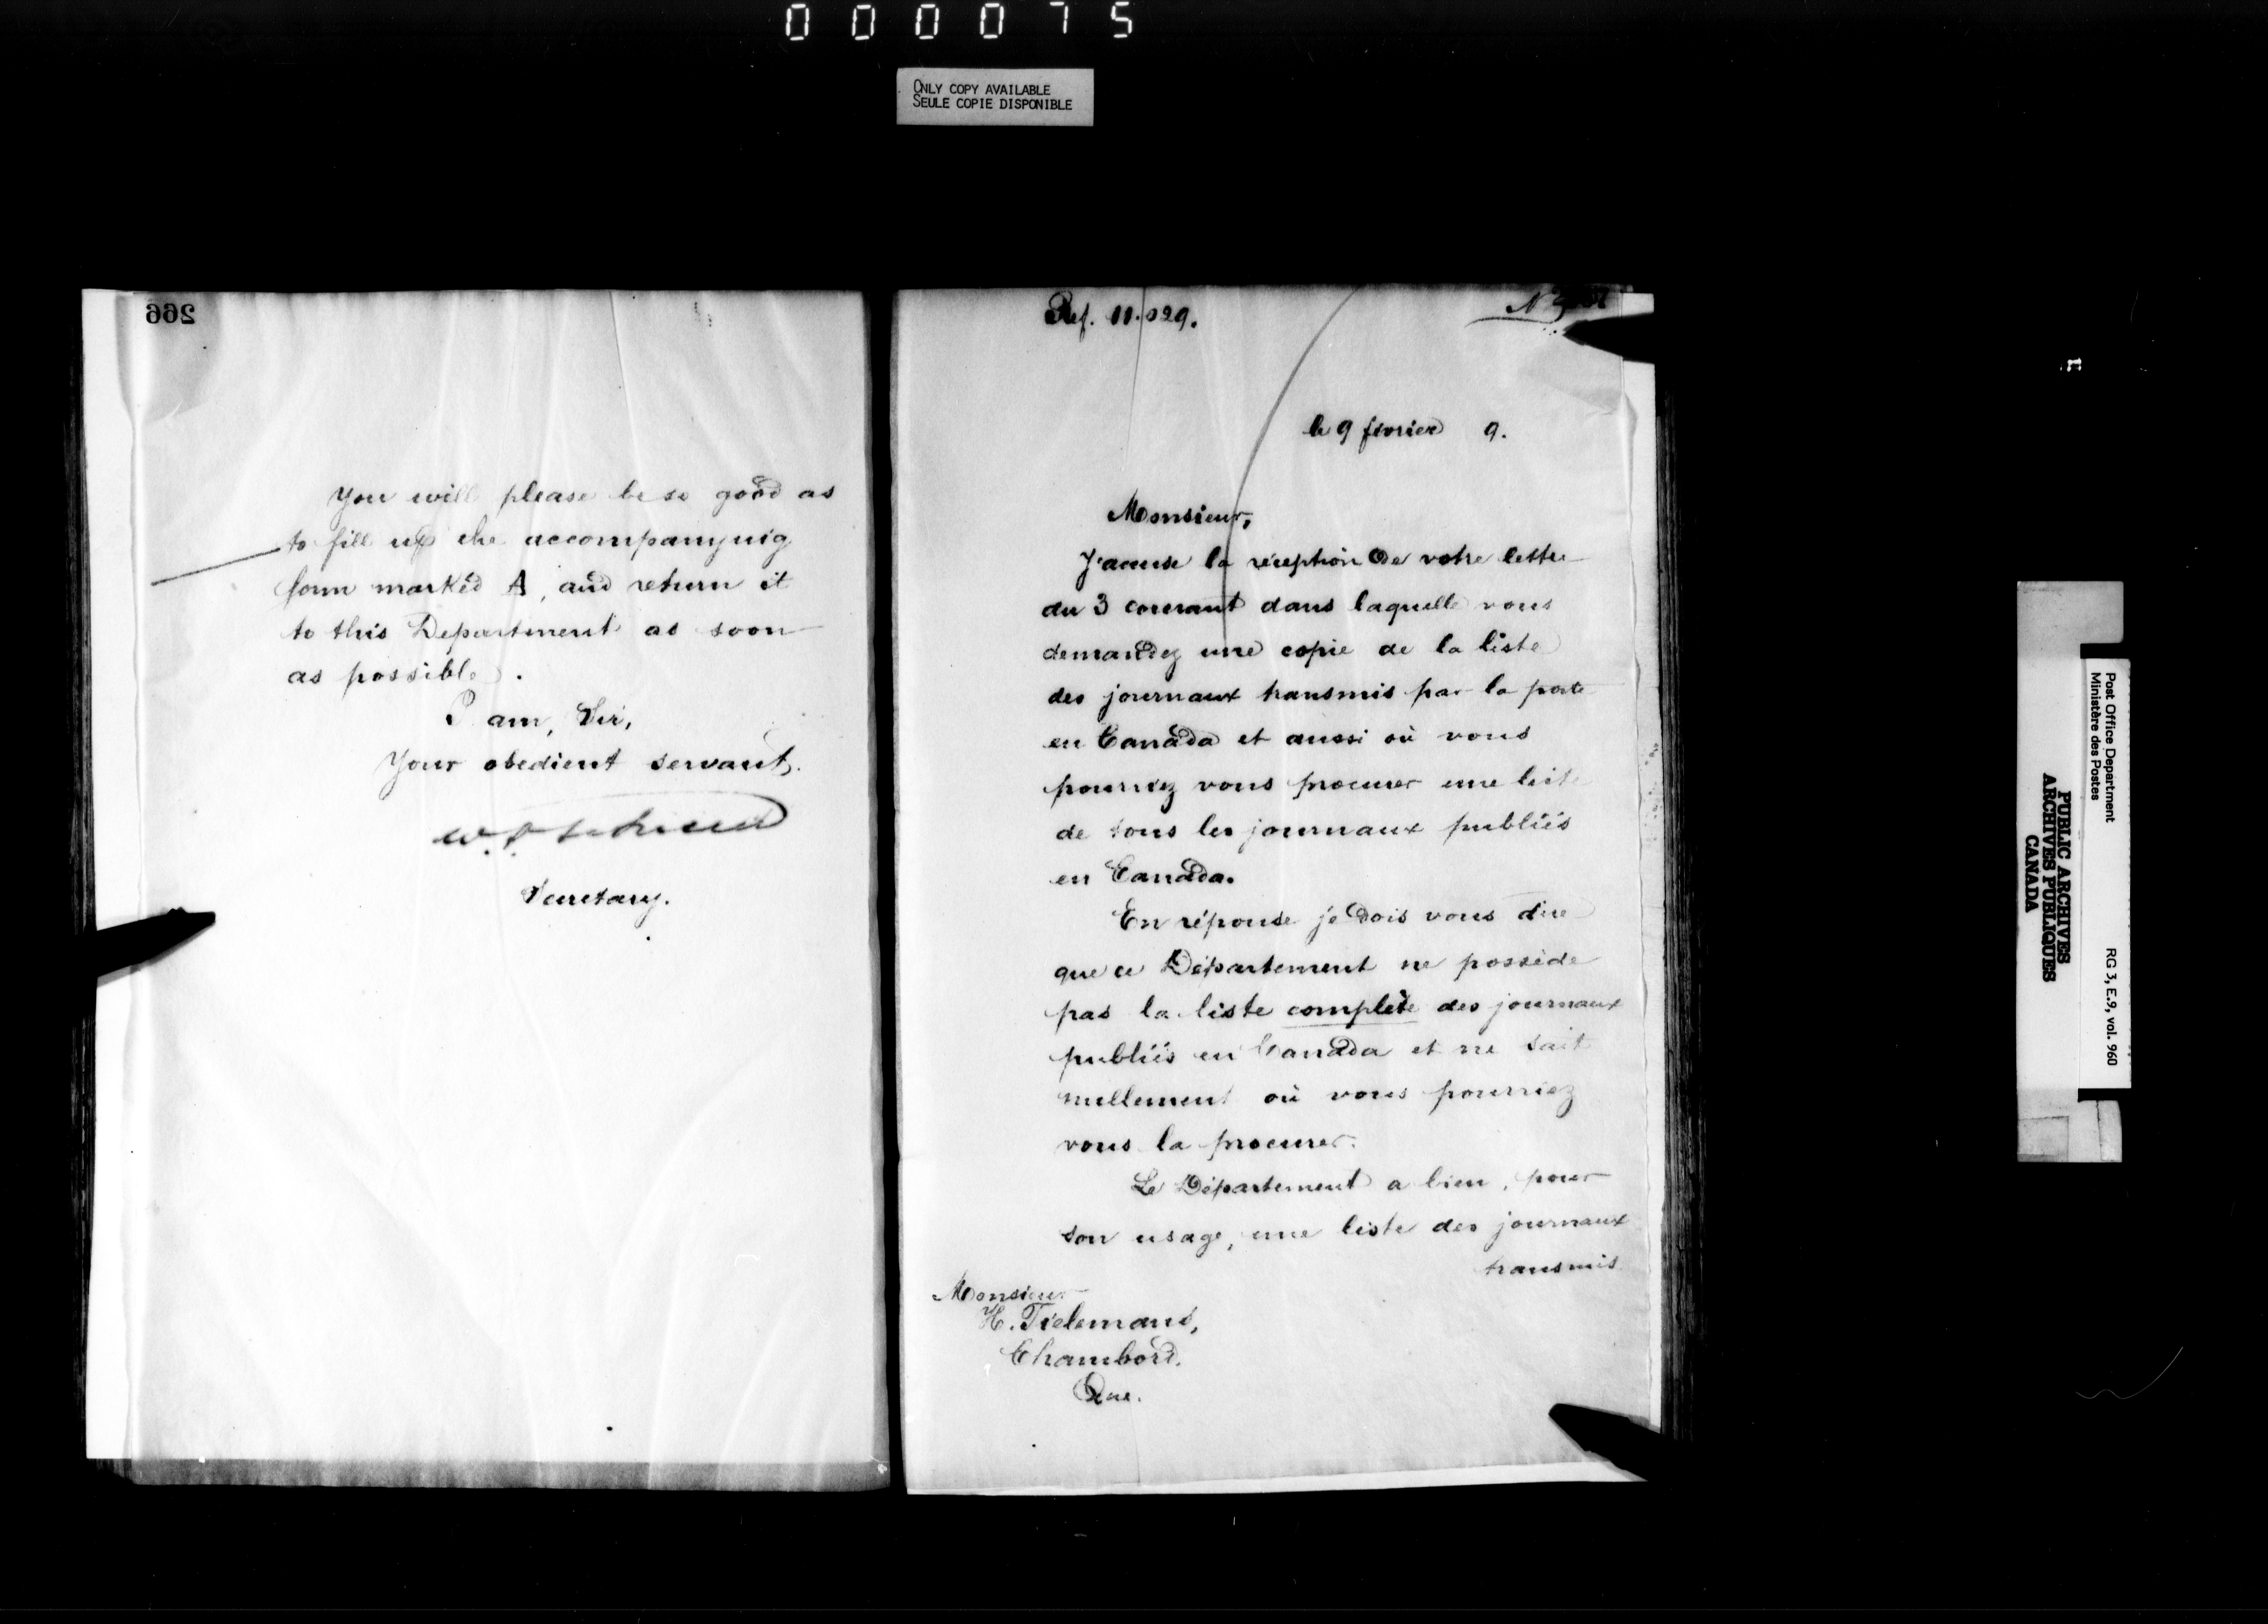 000075
ONLY COPY AVAILABLE
SEULE COPIE DISPONIBLE
266
You will please be so good as
to fill up the accompanying
form marked A, and return it
to this Department as soon
as possible.
I am, Sir,
Your obedient servant,
Secretary.
Ref. 11.029.
le 9 février 9.
Monsieur,
J'accuse la réception de votre lettre
du 3 courant dans laquelle vous
demandez une copie de la liste
des journaux transmis par la poste
en Canada et aussi où vous
pourriez vous procurer une liste
de tous les journaux publiés
en Canada.
En réponse je dois vous dire
que ce Département ne possède
pas la liste complète des journaux
publiés en Canada et ne sait
nullement où vous pourriez
vous la procurer.
Le Département a bien, pour
son usage, une liste des journaux
transmis
Monsieur
H. Tielemans,
Chambord.
Que.
Post Office Department
Ministère des Postes
RG 3, E.9, vol. 960
PUBLIC ARCHIVES
ARCHIVES PUBLIQUES
CANADA